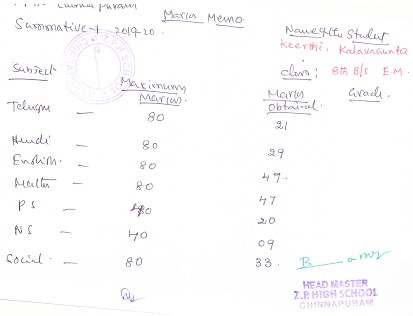 Marks Memo
Summative-1 2019-20.
Name of the Student
Keerthi. Kalavagunta
class; 8th B/S E.M.
Subject Maximum Marks Marks Obtained Grade.
Telugu — 80 21
Hindi — 80 29
English. — 80 49.
Maths — 80 47
PS — 40 20
NS — 40 09
Social. — 80 33.
HEAD MASTER
Z.P. HIGH SCHOOL
CHINNAPURAM